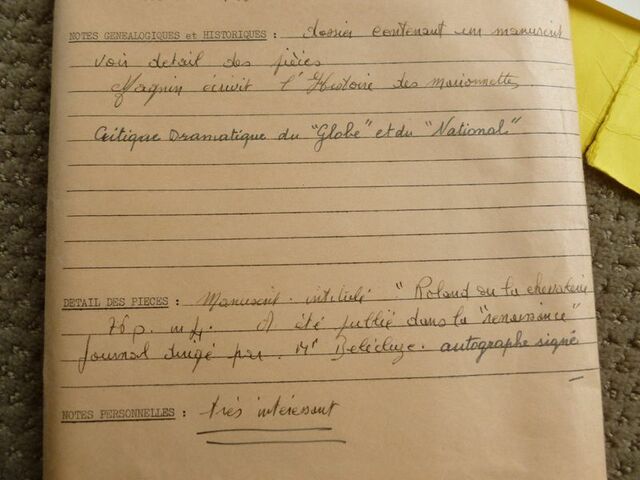 NOTES GENEALOGIQUES et HISTORIQUES : dossier contenant un manuscrit
voir detail des pièces
Magnin écrivit l'Histoire des marionnettes
Critique Dramatique du "Globe" et du "National"
DETAIL DES PIECES : Manuscrit intitulé "Roland ou la chevalerie
76 p. in 4. A été publié dans la "renaissance"
Journal dirigé par Mr Delécluze. autographe signé
NOTES PERSONNELLES : très intéressant